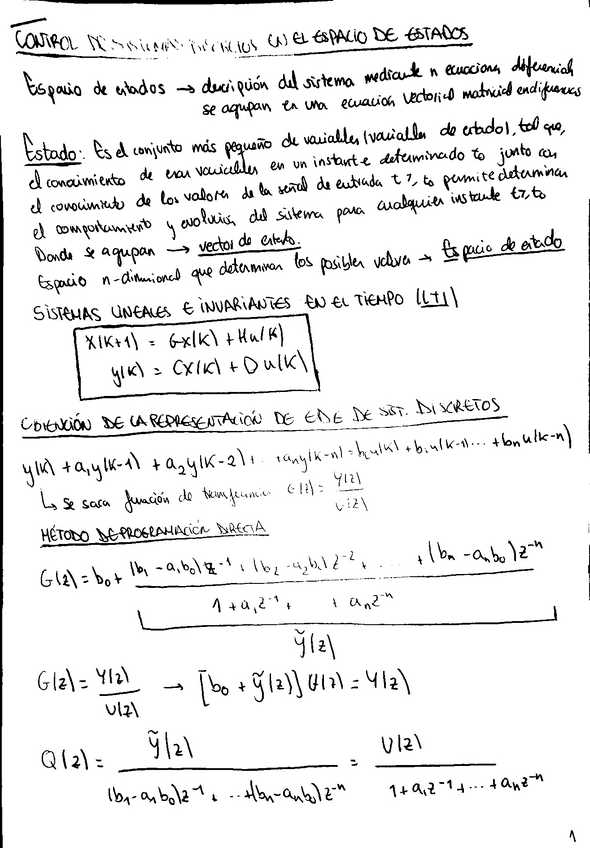 CONTROL DE SISTEMAS DISCRETOS EN EL ESPACIO DE ESTADOS
Espacio de estados → descripción del sistema mediante n ecuaciones diferencial
se agrupan en una ecuacion vectorial matricial en diferencias
Estado: Es el conjunto más pequeño de variables (variables de estado), tal que,
el conocimiento de esas variables en un instante determinado to junto con
el conocimiento de los valores de la señal de entrada t ≥ to permite determinar
el comportamiento y evolucion del sistema para cualquier instante t ≥ to
Donde se agrupan → vector de estado.
Espacio n-dimensional que determinan los posibles valores → Espacio de estado
SISTEMAS LINEALES E INVARIANTES EN EL TIEMPO (LTI)
X(K+1) = Gx(K) + Hu(K)
y(K) = Cx(K) + Du(K)
OBTENCIÓN DE LA REPRESENTACIÓN DE EDE DE SIST. DISCRETOS
y(K) + a₁y(K-1) + a₂y(K-2) + .. + any(K-n) = b₀u(K) + b₁u(K-1) ... + bnu(K-n)
↳ se saca función de transferencia G(z) = Y(z) / U(z)
MÉTODO DE PROGRAMACIÓN DIRECTA
G(z) = b₀ + (b₁ - a₁b₀)z⁻¹ + (b₂ - a₂b₀)z⁻² + ... + (bn - anb₀)z⁻ⁿ
1 + a₁z⁻¹ + + anz⁻ⁿ
Ỹ(z)
G(z) = Y(z) / U(z) → [b₀ + Ỹ(z)] U(z) = Y(z)
Q(z) = Ỹ(z) / (b₁ - a₁b₀)z⁻¹ + ... + (bn - anb₀)z⁻ⁿ = U(z) / 1 + a₁z⁻¹ + ... + anz⁻ⁿ
1